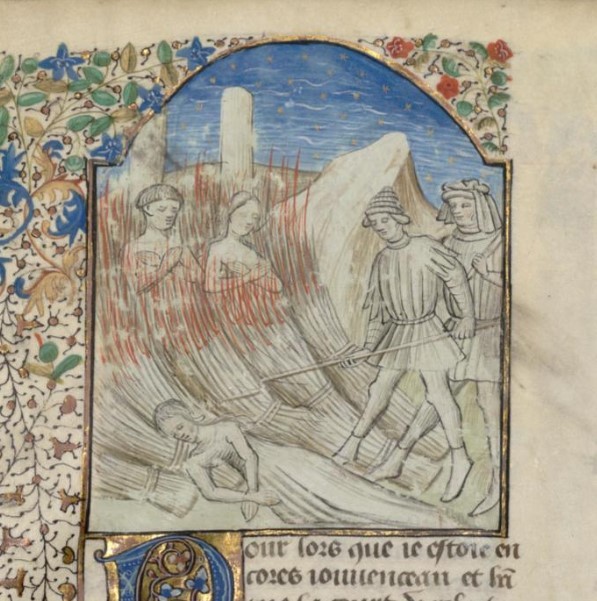 Pour lors que ie estoie en
cores iouuenceau et hā